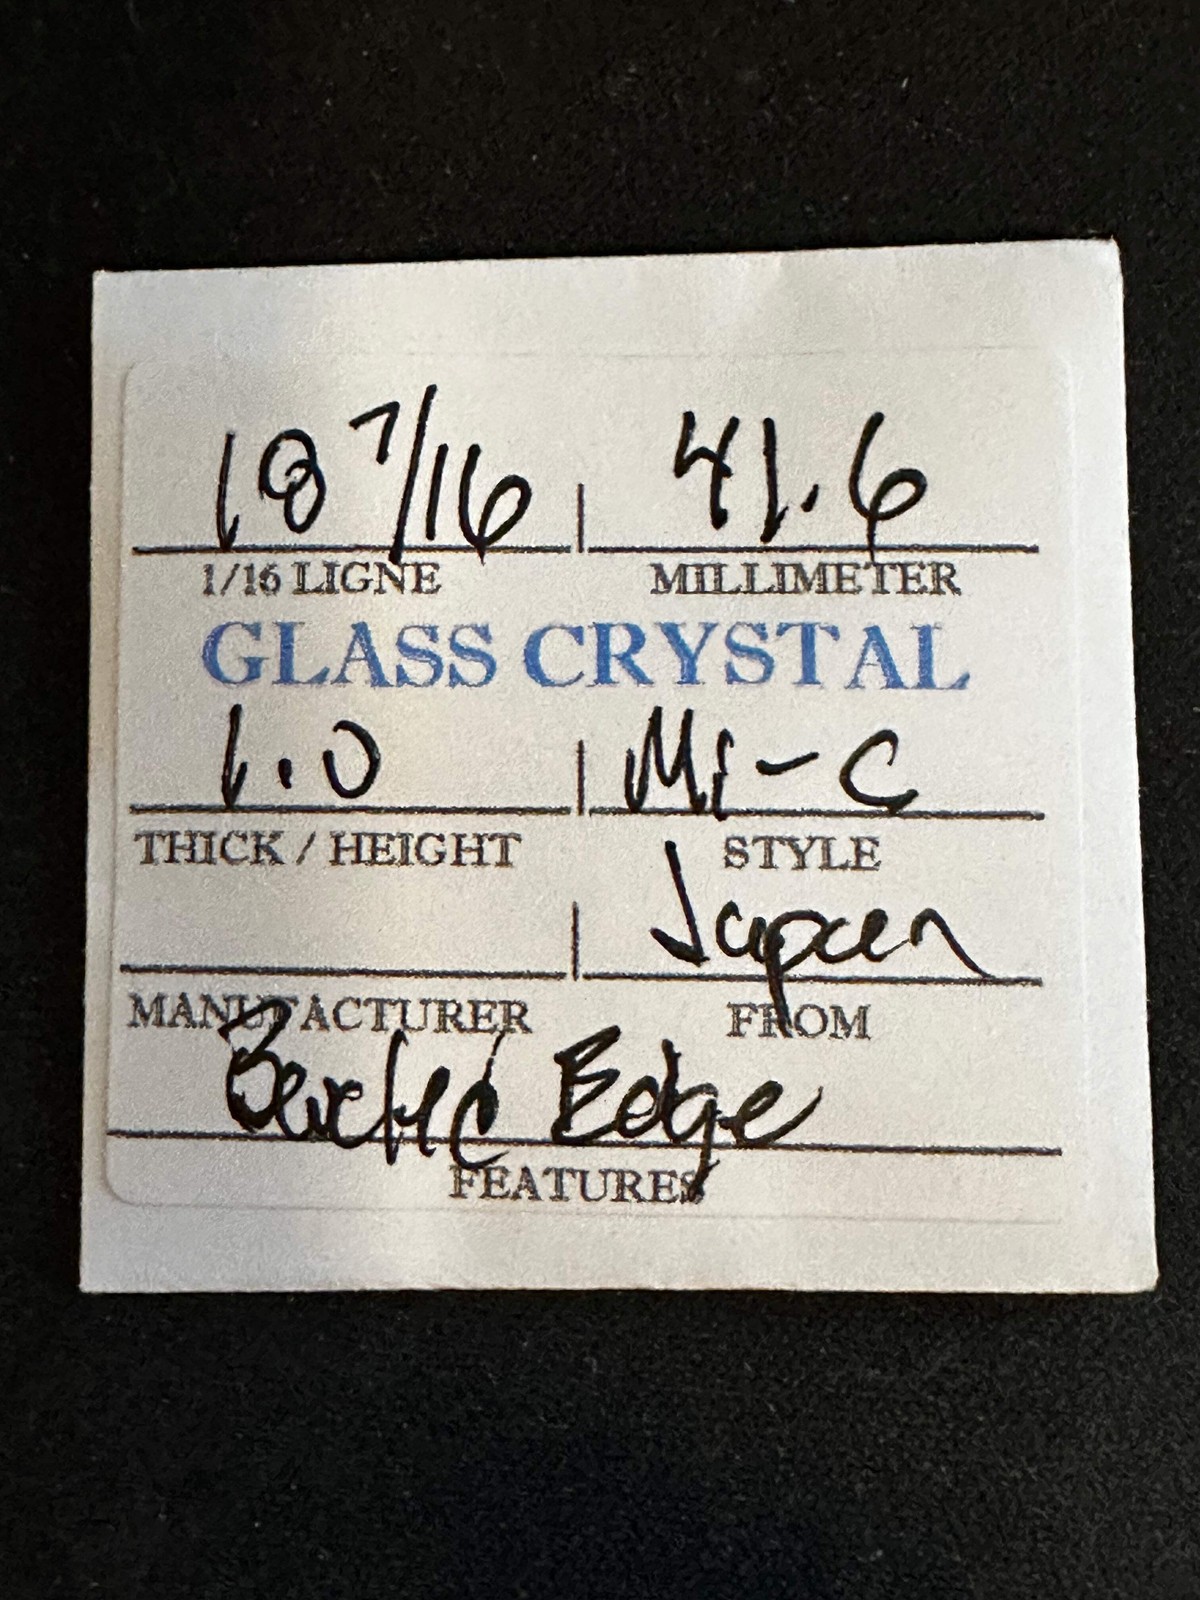 18 7/16 41.6
1/16 LIGNE MILLIMETER
GLASS CRYSTAL
1.0 Mi-C
THICK / HEIGHT STYLE
Japan
MANUFACTURER FROM
Edge
FEATURES